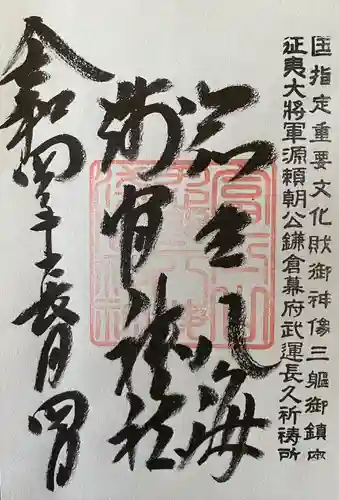 国指定重要文化財御神像三軀御鎮
征夷大将軍源頼朝公鎌倉幕府武運長久祈祷所
冨士八海
浅間神社
令和四年長月四日